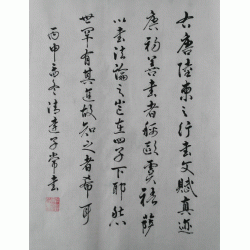 右唐陸柬之行書文賦真迹
唐初善書者稱歐虞褚薛
以書法論之豈在四子下耶然
世罕有其迹故知之者希耳
丙申初冬清遠子常書